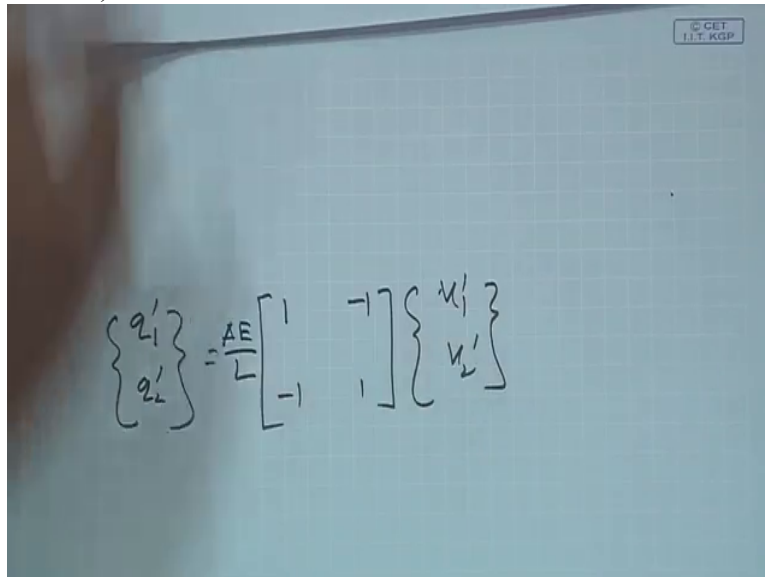 © CET
I.I.T. KGP
{q₁′ q₂′} = AE/L [1 -1 -1 1] {u₁′ u₂′}